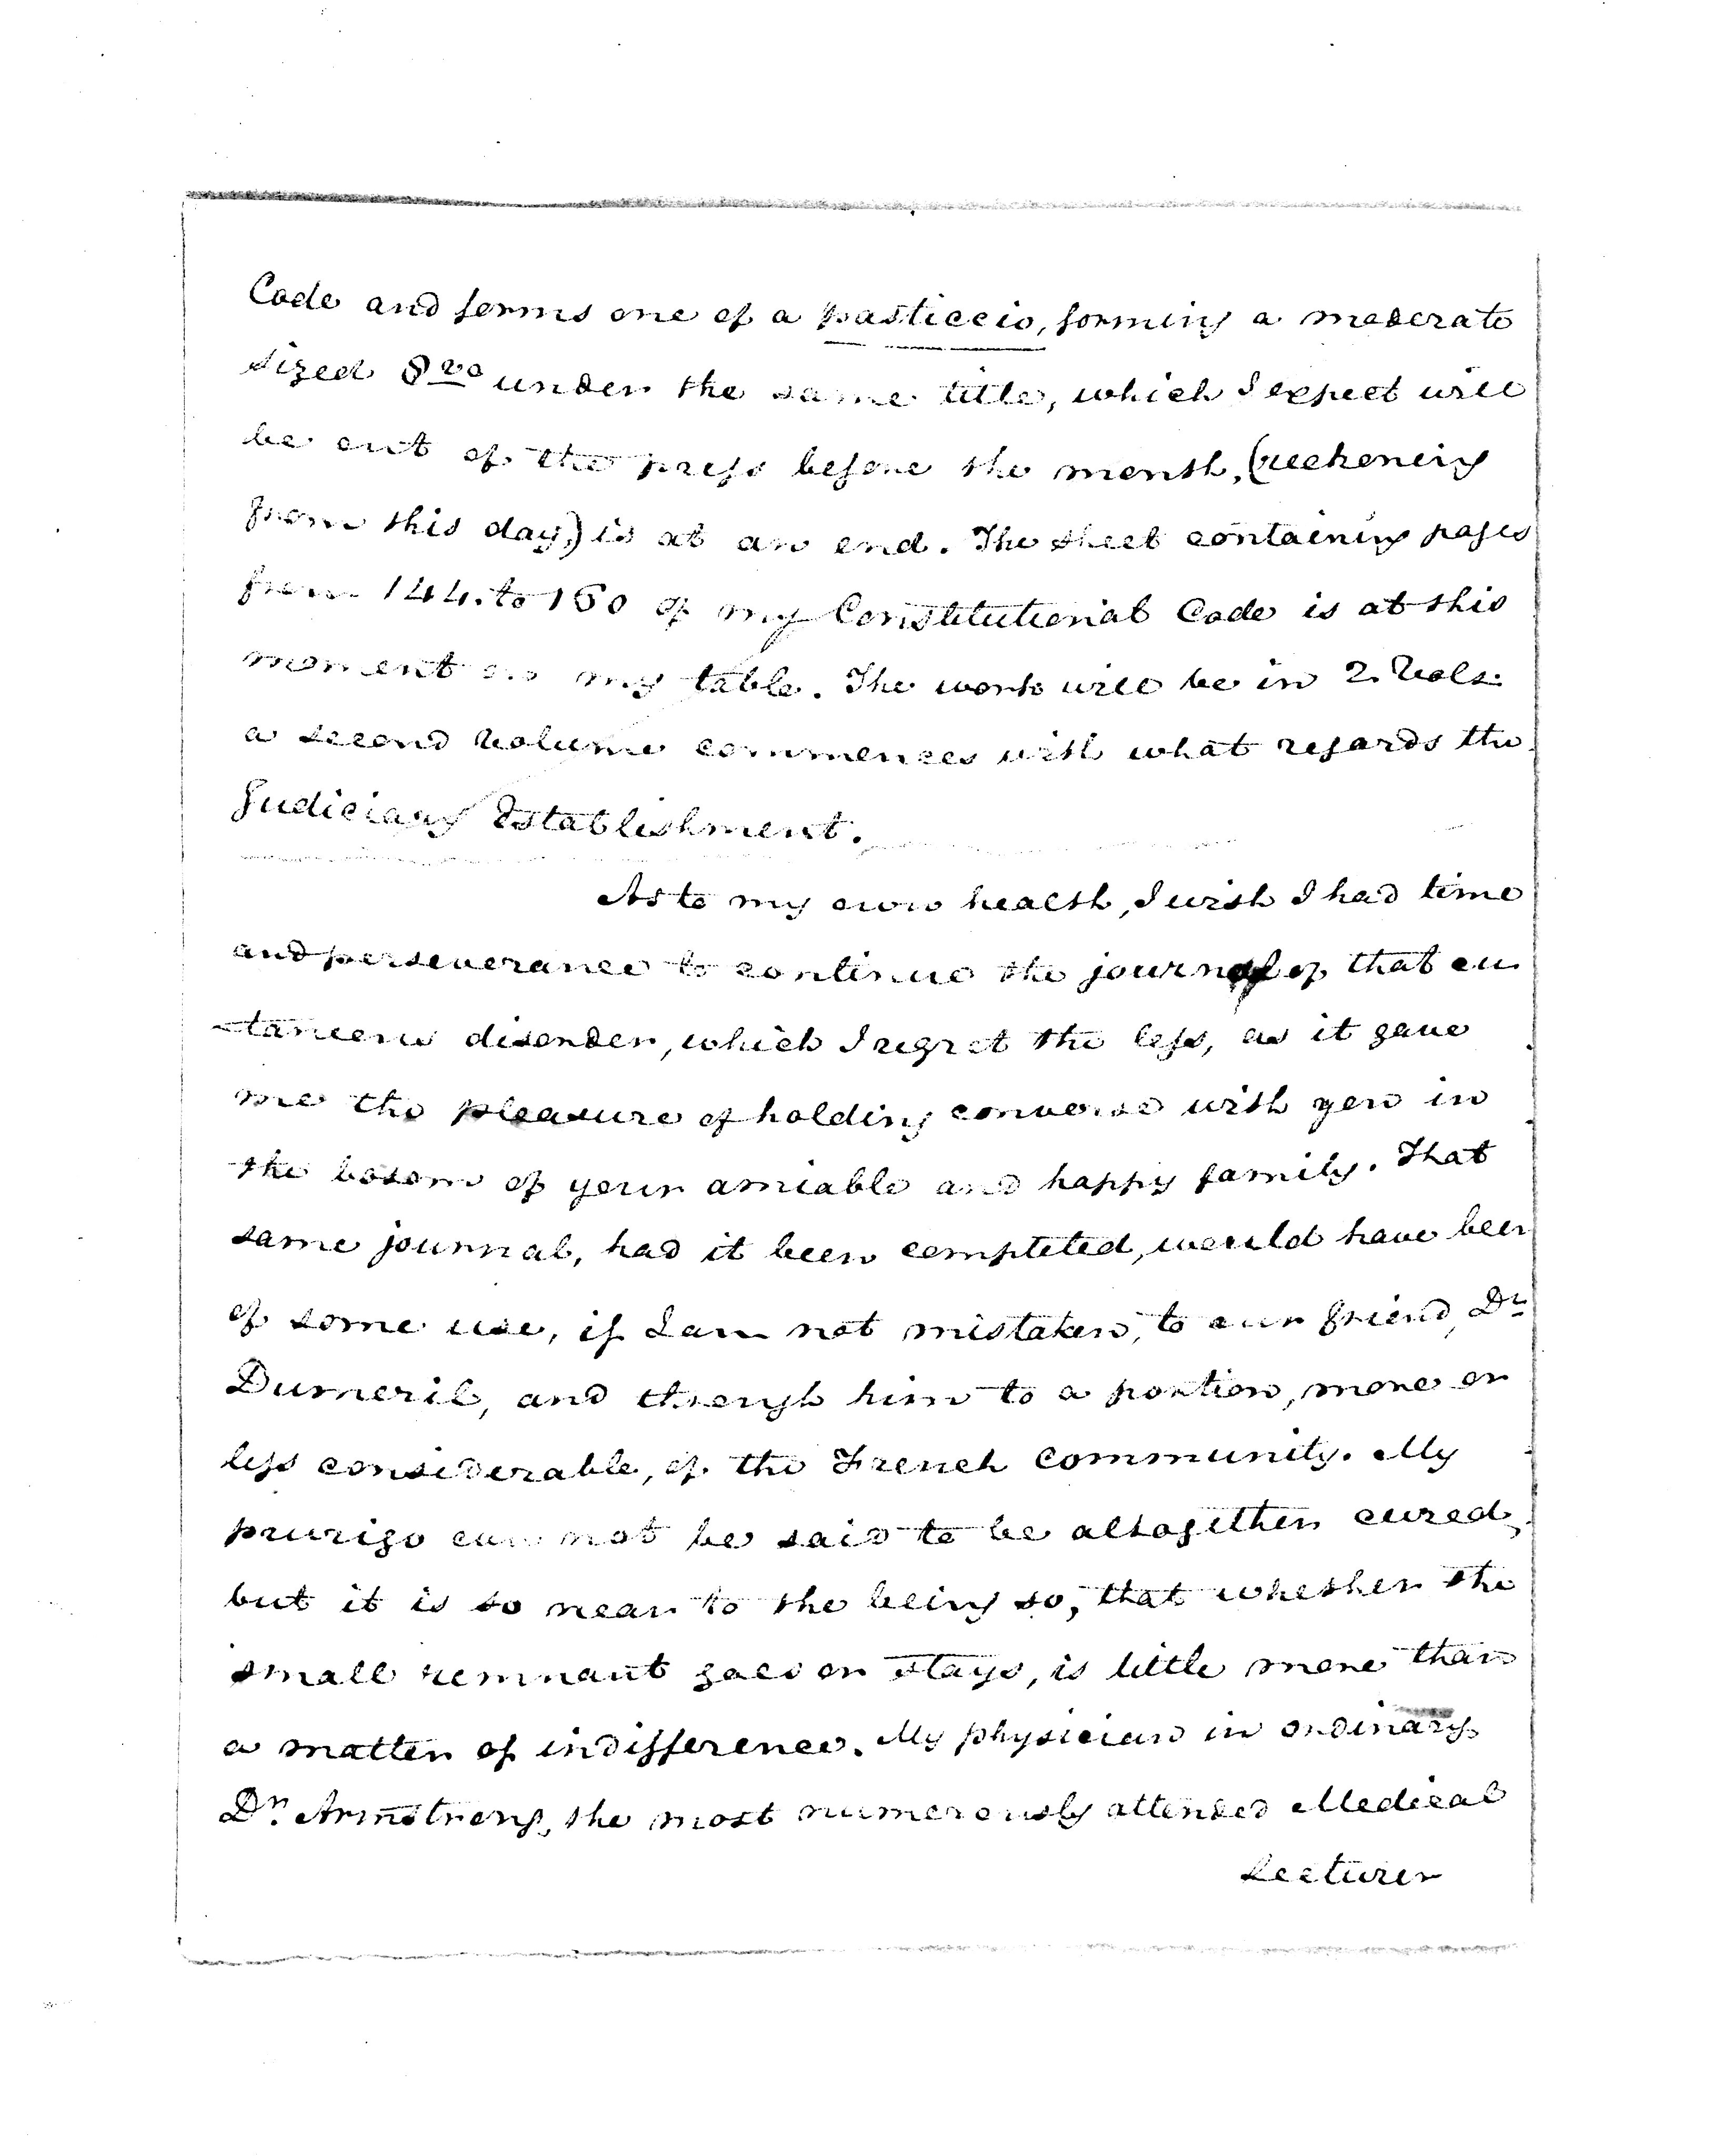 Code and forms one of a pasticcio, forming a moderate
sized 8vo under the same title, which I expect will
be out of the press before the month, (reckoning
from this day,) is at an end. The sheet containing pages
from 144. to 160 of my Constitutional Code is at this
moment on my table. The work will be in 2. Vols.
a second volume commences with what regards the
Judiciary Establishment.
As to my own health, I wish I had time
and perseverance to continue the journal of that cu
-taneous disorder, which I regret the less, as it gave
me the pleasure of holding converse with you in
the bosom of your amiable and happy family. That
same journal, had it been completed, would have been
of some use, if I am not mistaken, to our friend, Dr
Dumeril, and through him to a portion, more or
less considerable, of the French Community. My
prurigo can not be said to be altogether cured,
but it is so near to the being so, that whether the
small remnant goes or stays, is little more than
a matter of indifference. My physician in ordinary
Dr. Armstrong, the most numerously attended Medical
Lecturer